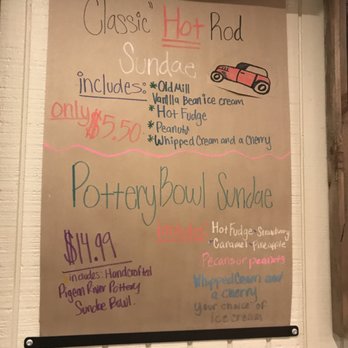 Classic" Hot Rod
Sundae
includes:
*Old Mill
Vanilla Bean ice cream
*Hot Fudge
*Peanuts
*Whipped Cream and a Cherry
only $5.50
Pottery Bowl Sundae
$14.99
includes: Handcrafted
Pigeon River Pottery
Sundae Bowl.
Hot Fudge Strawberry
Caramel, Pineapple
Pecans or peanuts
Whipped Cream and
a cherry
your choice of
ice cream